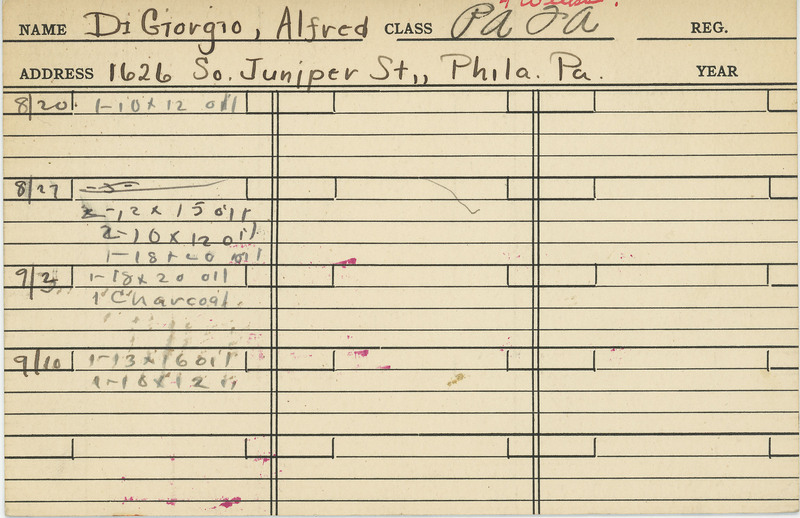 4 weeks.
NAME Di Giorgio, Alfred CLASS PA FA REG.
ADDRESS 1626 So. Juniper St,, Phila. Pa. YEAR
8/20 1-10 x 12 oil
8/27
2-12 x 15 oil
2-10 x 12 oil
1-18 x 20 oil
9/3 1-18 x 20 oil
1 Charcoal.
9/10 1-13 x 16 oil
1-10 x 12 "